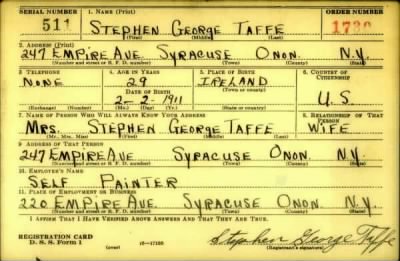 SERIAL NUMBER 1. NAME (Print) ORDER NUMBER
511 STEPHEN GEORGE TAFFE 1730
(First) (Middle) (Last)
2. ADDRESS (Print)
247 EMPIRE AVE. SYRACUSE ONON. N.Y.
(Number and street or R. F. D. number) (Town) (County) (State)
3. TELEPHONE 4. AGE IN YEARS 5. PLACE OF BIRTH 6. COUNTRY OF CITIZENSHIP
NONE 29 IRELAND
DATE OF BIRTH (Town or county)
2-2-1911 U.S.
(Exchange) (Number) (Mo.) (Day) (Yr.) (State or country)
7. NAME OF PERSON WHO WILL ALWAYS KNOW YOUR ADDRESS 8. RELATIONSHIP OF THAT PERSON
MRS. STEPHEN GEORGE TAFFE WIFE
(Mr., Mrs., Miss) (First) (Middle) (Last)
9. ADDRESS OF THAT PERSON
247 EMPIRE AVE SYRACUSE ONON. N.Y.
(Number and street or R. F. D. number) (Town) (County) (State)
10. EMPLOYER'S NAME
SELF PAINTER
11. PLACE OF EMPLOYMENT OR BUSINESS
220 EMPIRE AVE. SYRACUSE ONON. N.Y.
(Number and street or R. F. D. number) (Town) (County) (State)
I AFFIRM THAT I HAVE VERIFIED ABOVE ANSWERS AND THAT THEY ARE TRUE.
REGISTRATION CARD
D. S. S. Form 1 (over) 16—17105 Stephen George Taffe
(Registrant's signature)